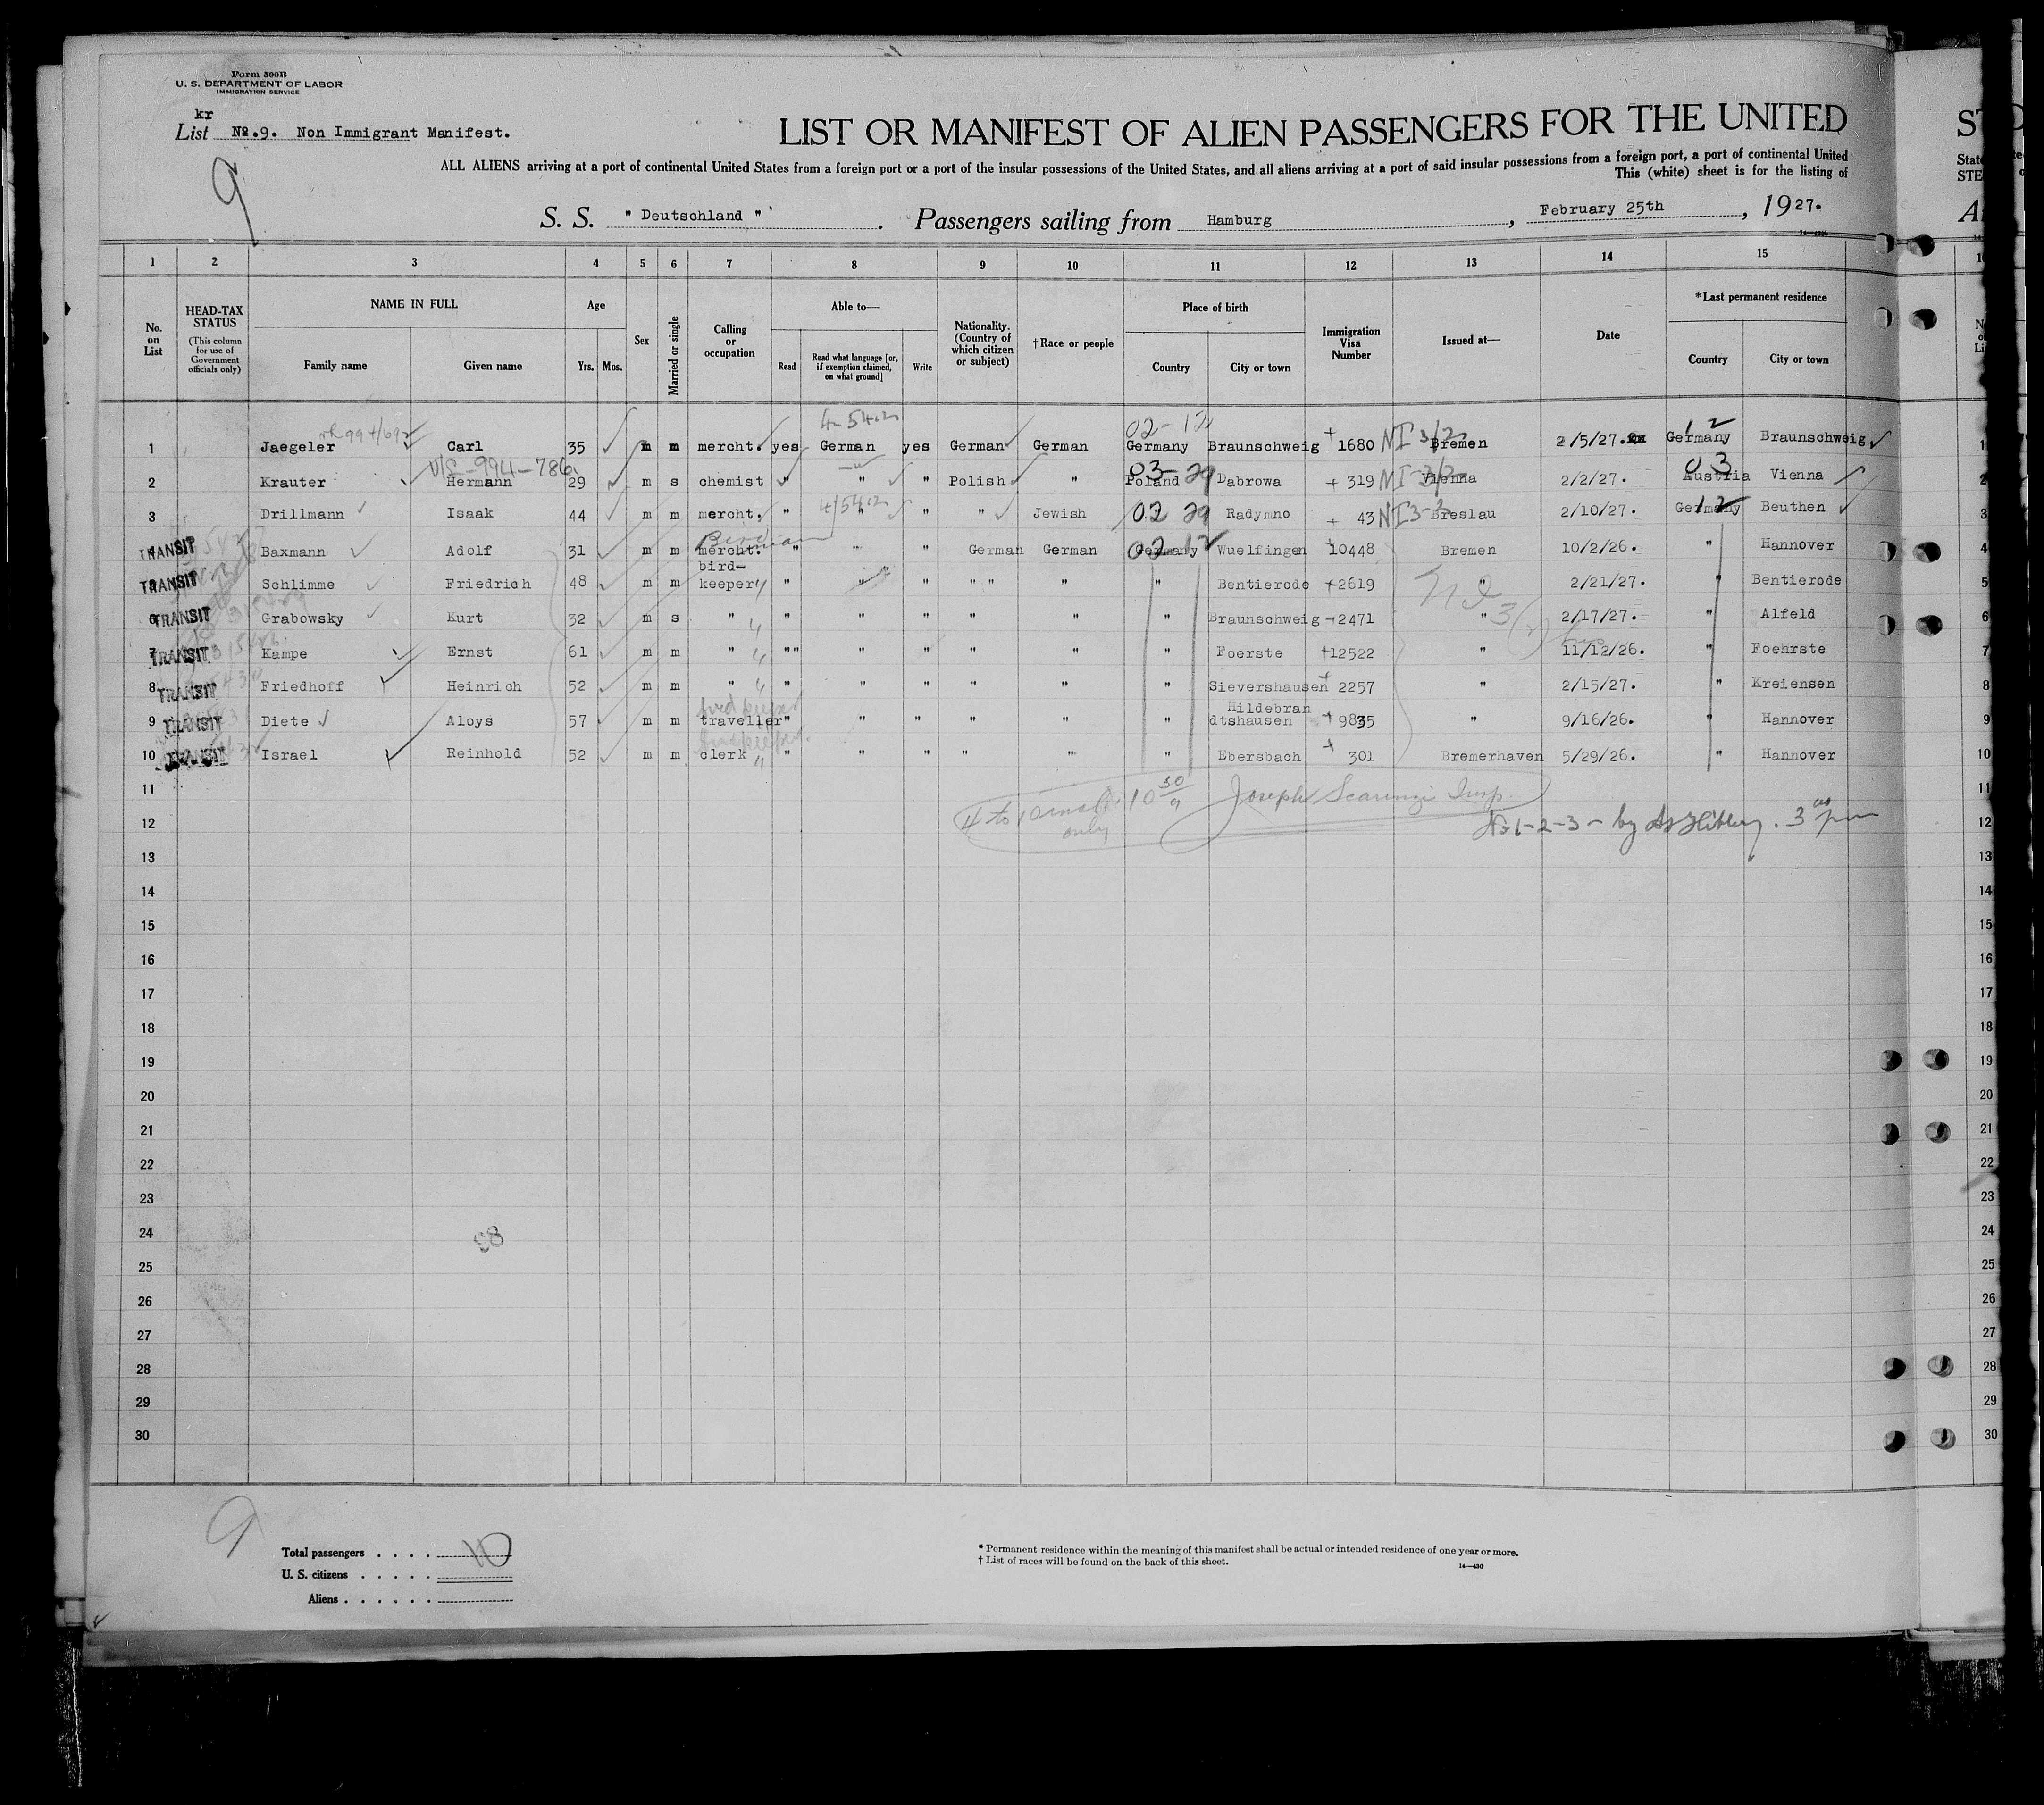 Form 500B
U. S. DEPARTMENT OF LABOR
IMMIGRATION SERVICE
kr
List No.9. Non Immigrant Manifest.
9
LIST OR MANIFEST OF ALIEN PASSENGERS FOR THE UNITED
ALL ALIENS arriving at a port of continental United States from a foreign port or a port of the insular possessions of the United States, and all aliens arriving at a port of said insular possessions from a foreign port, a port of continental United
This (white) sheet is for the listing of
S. S. " Deutschland " . Passengers sailing from Hamburg , February 25th , 1927.
1 2 3 4 5 6 7 8 9 10 11 12 13 14 15
No. on List
HEAD-TAX STATUS (This column for use of Government officials only)
NAME IN FULL Family name Given name
Age Yrs. Mos.
Sex
Married or single
Calling or occupation
Able to— Read Read what language [or, if exemption claimed, on what ground] Write
Nationality. (Country of which citizen or subject)
†Race or people
Place of birth Country City or town
Immigration Visa Number
Issued at—
Date
*Last permanent residence Country City or town
4-542 02-12 12
1 Jaegeler Carl 35 m m mercht. yes German yes German German Germany Braunschweig 1680 NI 3/2 Bremen 2/5/27. Germany Braunschweig
V/S-994-786 03 29 03
2 Krauter Hermann 29 m s chemist " " " Polish " Poland Dabrowa 319 NI-3/2 Vienna 2/2/27. Austria Vienna
4/542 02 29 12
3 Drillmann Isaak 44 m m mercht. " " " " Jewish Radymno 43 NI 3-2 Breslau 2/10/27. Germany Beuthen
02 12
4 TRANSIT Baxmann Adolf 31 m m mercht. " " " German German Germany Wuelfingen 10448 Bremen 10/2/26. " Hannover
5 TRANSIT Schlimme Friedrich 48 m m bird-keeper " " " " " " " Bentierode 2619 " 2/21/27. " Bentierode
6 TRANSIT Grabowsky Kurt 32 m s " " " " " " " Braunschweig 2471 " 2/17/27. " Alfeld
7 TRANSIT Kampe Ernst 61 m m " "" " " " " " Foerste 12522 " 11/12/26. " Foehrste
8 TRANSIT Friedhoff Heinrich 52 m m " " " " " " " Sievershausen 2257 " 2/15/27. " Kreiensen
9 TRANSIT Diete Aloys 57 m m traveller " " " " " " Hildebran dtshausen 9835 " 9/16/26. " Hannover
10 TRANSIT Israel Reinhold 52 m m clerk " " " " " " Ebersbach 301 Bremerhaven 5/29/26. " Hannover
11
12
4 to 10 only 10 30 Joseph Insp.
No 1-2-3 - by 3 pm
13
14
15
16
17
18
19
20
21
22
23
24
25
26
27
28
29
30
9
Total passengers . . . . 10
U. S. citizens . . . . .
Aliens . . . . . .
* Permanent residence within the meaning of this manifest shall be actual or intended residence of one year or more.
† List of races will be found on the back of this sheet.
14—430